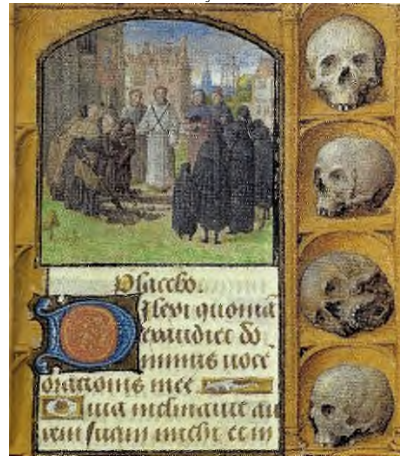 Placebo.
Dilexi quoniā
exaudiet do
minus uocē
orationis mee
Quia inclinauit au
rem suam michi et in